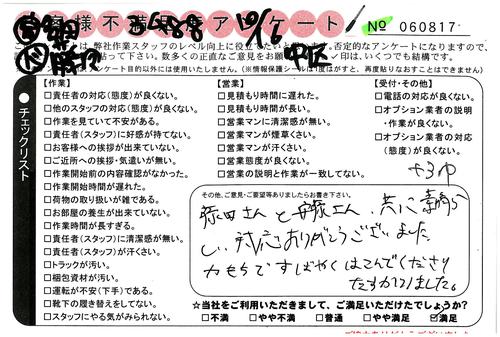 様不満足アンケート 10/6 № 060817
は、弊社作業スタッフのレベル向上に役立てたいと
否定的なアンケートになりますので、
貼って下さい。数多くの正直なご意見をお願
印は、いくつでも結構です。
アンケート目的以外には使用いたしません。(※情報保護シールは1度はがすと、再度貼りなおすことはできません)
チェックリスト
【作業】
□責任者の対応(態度)が良くない。
□他のスタッフの対応(態度)が良くない。
□作業を見ていて不安がある。
□責任者(スタッフ)に好感が持てない。
□お客様への挨拶が出来ていない。
□ご近所への挨拶・気遣いが無い。
□作業開始前の内容確認がなかった。
□作業開始時間が遅れた。
□荷物の取り扱いが雑である。
□お部屋の養生が出来ていない。
□作業時間が長すぎる。
□責任者(スタッフ)に清潔感が無い。
□責任者(スタッフ)が汗くさい。
□トラックが汚い。
□梱包資材が汚い。
□運転が不安(下手)である。
□靴下の履き替えをしてない。
□スタッフにやる気がみられない。
【営業】
□見積もり時間に遅れた。
□見積もり時間が長い。
□営業マンに清潔感が無い。
□営業マンが煙草くさい。
□営業マンが汗くさい。
□営業態度が良くない。
□営業の説明と作業が一致してない。
【受付・その他】
□電話の対応が良くない。
□オプション業者の説明
・作業が良くない。
□オプション業者の対応
(態度)が良くない。
その他、ご意見・ご要望等ありましたらお書き下さい。
さんと安保さん、共に素晴ら
しい対応ありがとうございました。
力もちですばやくはこんでくださり
たすかりました。
☆当社をご利用いただきまして、ご満足いただけたでしょうか?
□不満 □やや不満 □普通 □やや満足 ☑満足